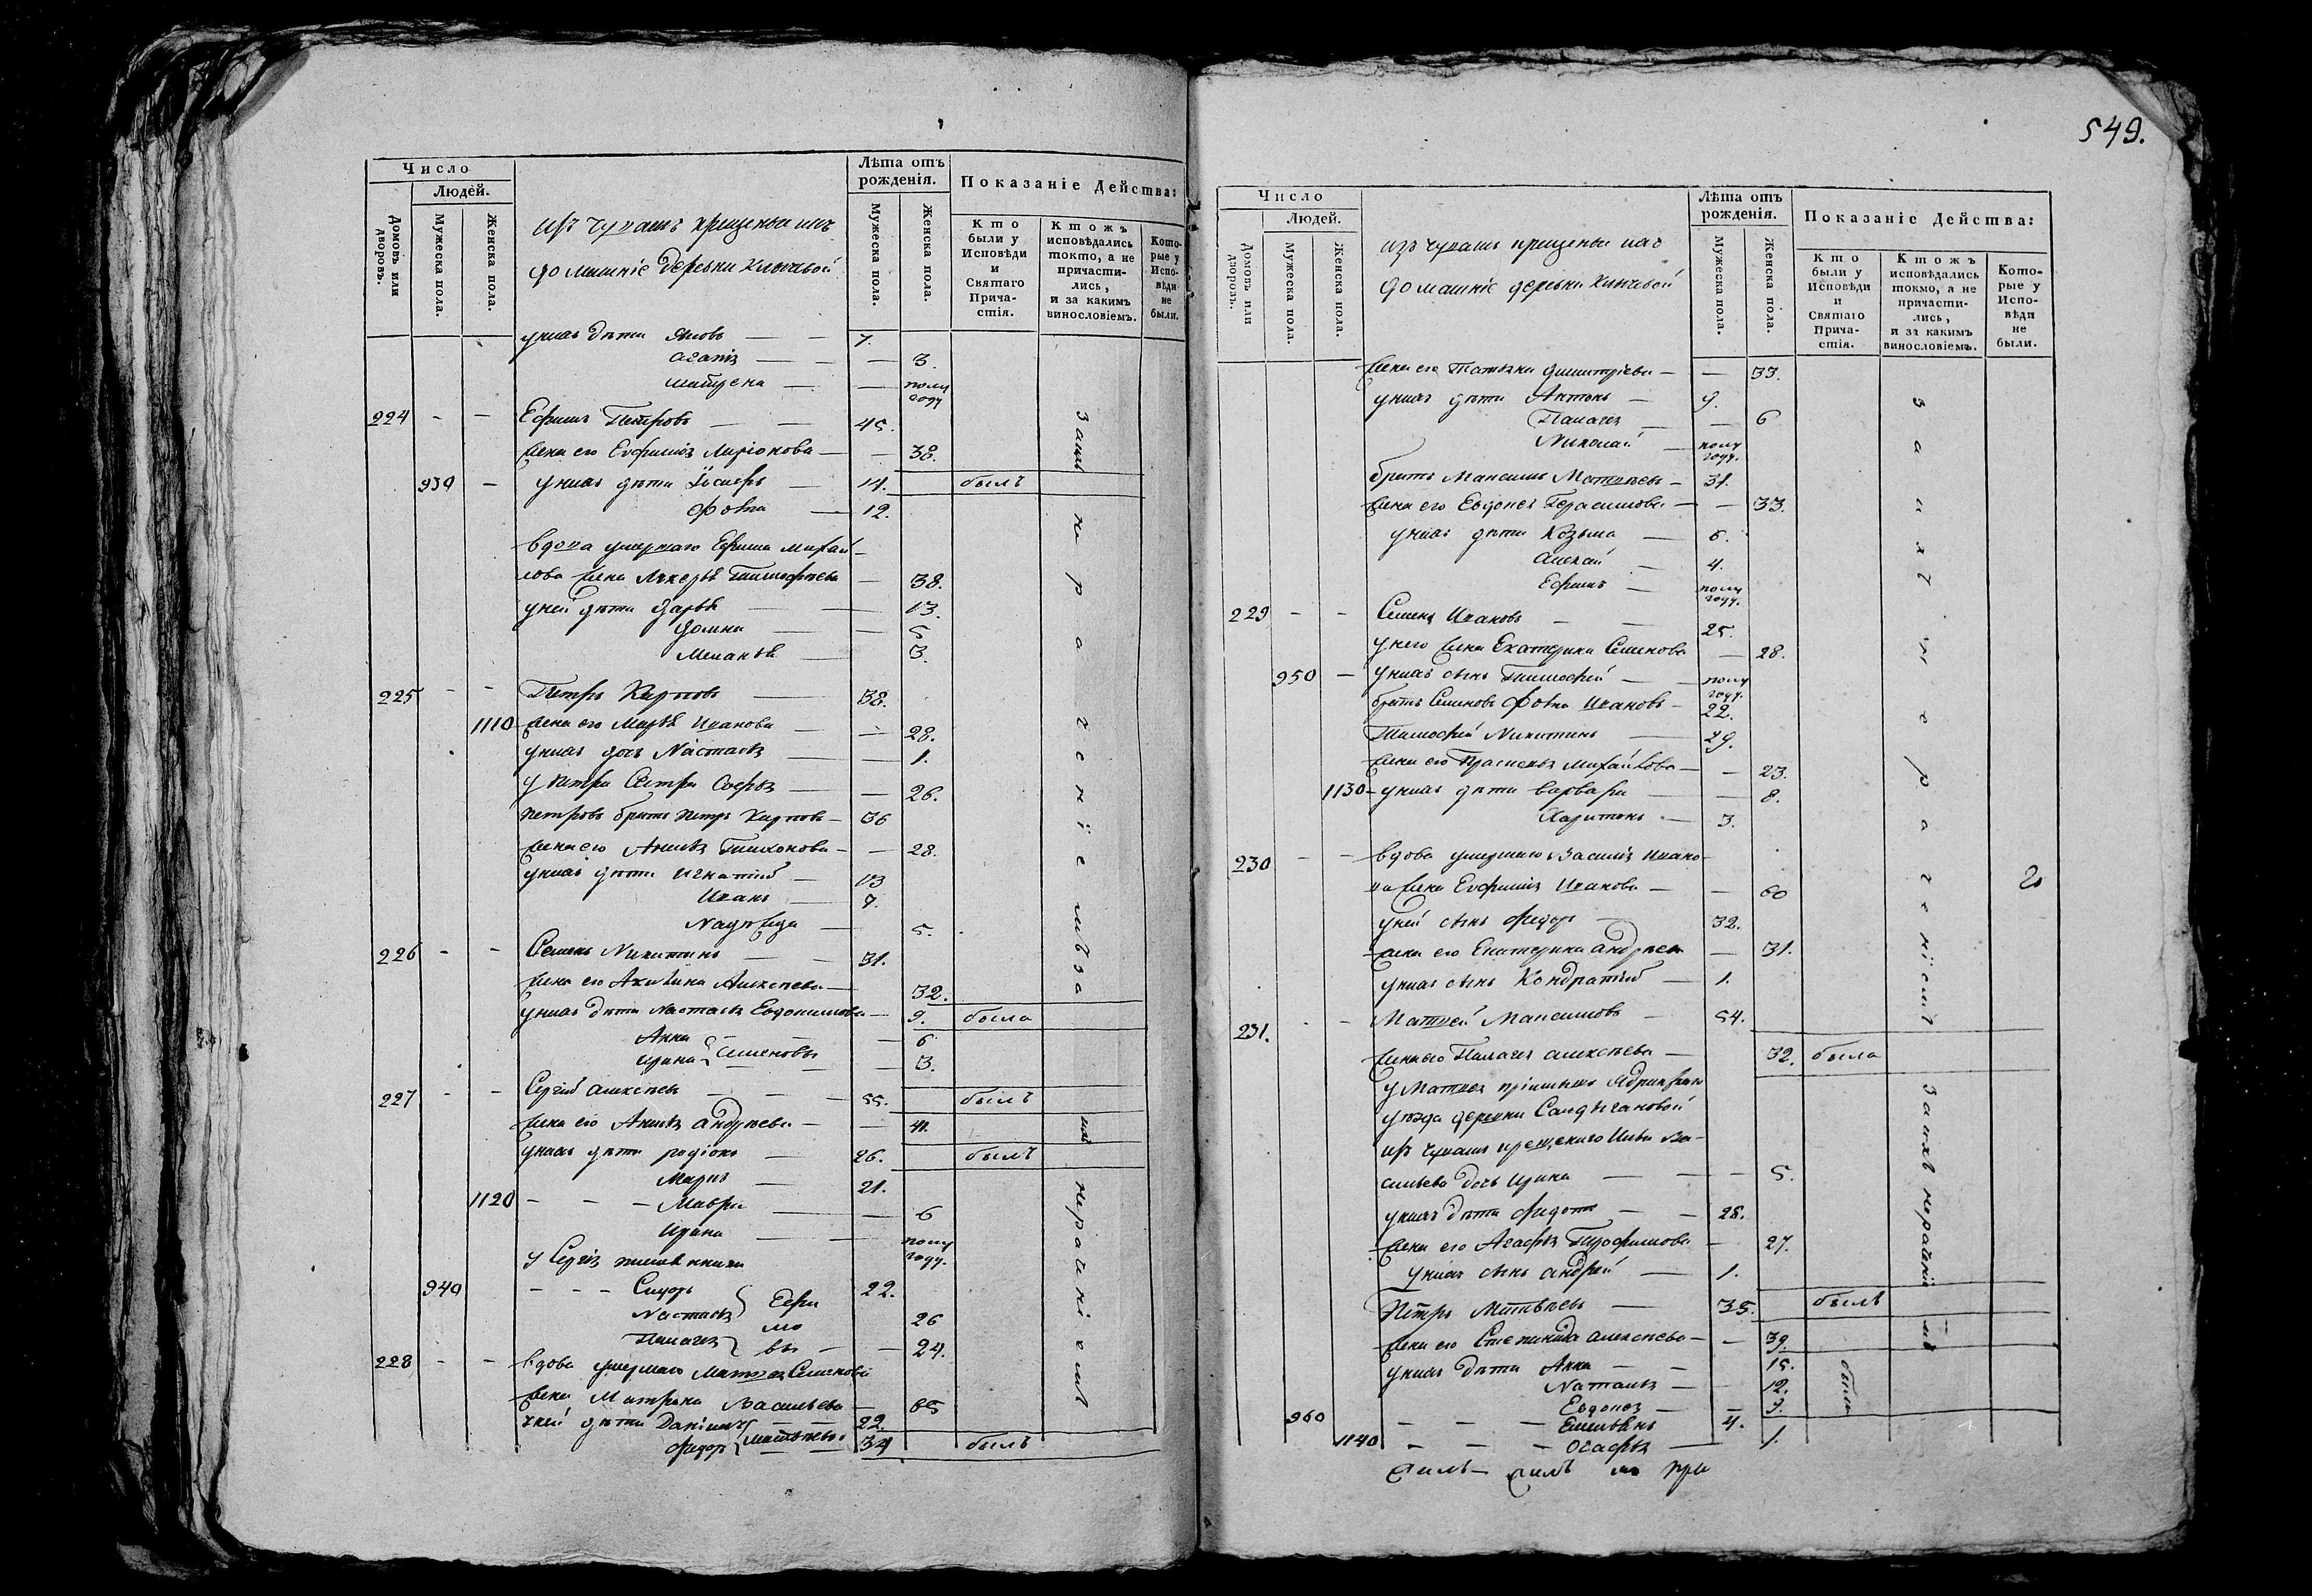 Число
Людей.
Домовъ или дворовъ.
Мужеска пола.
Женска пола.
изъ чувашъ крещеныи ихъ
домашніе деревни Ключевой
Лѣта отъ рожденія.
Мужеска пола.
Женска пола.
Показаніе Действа:
Кто были у Исповѣди и Святаго Прича-стія.
Ктожъ исповѣдались токто, а не причасти-лись, и за какимъ винословіемъ.
Кото-рые у Испо-вѣди не были.
у нихъ дѣти Яковъ — 7.
Агапія — 3.
Матрена — полу году
224 - - Ефимъ Петровъ — 45.
жена его Евфимія Ларіонова — 38.
939 - у нихъ дѣти Іосифъ — 14. былъ
Фома — 12.
вдова умершаго Ефима Михай-
лова жена Лукерья Тимофѣева — 38.
у ней дѣти Дарья — 13.
Домна — 5
Меланья — 3.
225 - - Петръ Карповъ — 38.
1110 жена его Марья Иванова — 28.
у нихъ дочь Настасья — 1.
у Петра сестра Софья — 26.
Петровъ братъ Петръ Карповъ — 36
жена его Анна Тихонова — 28.
у нихъ дѣти Игнатій — 13
Иванъ — 7.
Надежда — 5.
226 - - Семенъ Никитинъ — 31.
жена его Акилина Алексѣева — 32.
у нихъ дѣти Настасья Евдокимова — 9. была
Анна — 6
Ирина } Семеновы — 3.
227 - - Сергій Алексѣевъ — 55. былъ
жена его Анна Андреева — 41.
у нихъ дѣти Родіонъ — 26. былъ
Маркъ — 21.
1120 - - - Мавра — 6
Ирина — полу году.
у Сергія племянники
940 - - - Сидоръ 22.
Настасья } Ефимовы 26
Палагея — 24.
228 - - вдова умершаго Матвея Семенова
жена Матрена Васильева — 65
у ней дѣти Данила — 22
Федоръ } Матвѣевы 34 былъ
за ихъ нераченіемъ
за
ихъ
нераченіемъ
549.
Число
Людей.
Домовъ или дворовъ.
Мужеска пола.
Женска пола.
изъ чувашъ крещеныи ихъ
домашніе деревни Ключевой
Лѣта отъ рожденія.
Мужеска пола.
Женска пола.
Показаніе Действа:
Кто были у Исповѣди и Святаго Прича-стія.
Ктожъ исповѣдались токмо, а не причасти-лись, и за какимъ винословіемъ.
Кото-рые у Испо-вѣди не были.
жена его Татьяна Димитріева — — 33.
у нихъ дѣти Антонъ — 9.
Палагея — 6
Николай — полу году.
братъ Максимъ Матвѣевъ — 31.
жена его Евдокея Герасимова — — 33.
у нихъ дѣти Козьма — 6.
Алексей — 4.
Ефимъ — полу году.
229 - - Семенъ Ивановъ — 25.
у него жена Екатерина Семенова — 28.
950 - у нихъ сынъ Тимофей — полу году.
братъ Семеновъ Фома Ивановъ — 22.
Тимофей Никитинъ — 29.
жена его Прасковья Михайлова — — 23.
1130 - у нихъ дѣти Варвара — 8.
Харитонъ — 3.
230 - - вдова умершаго Василія Ивано-
ва жена Евфимія Иванова — — 60
у ней сынъ Федоръ 32.
жена его Екатерина Андреева — 31.
у нихъ сынъ Кондратій — 1.
231. - - Матвей Максимовъ — 54.
жена его Палагея Алексѣева — 32. была
у Матвея пріемышъ Ядринскаго
уѣзда деревни
изъ чувашъ крещенаго Ильи Ва-
сильева дочь Ирина — — 5.
у нихъ дѣти Федотъ — 28.
жена его Агафья Трофимова — 27.
у нихъ сынъ Андрей — 1.
Петръ Матвѣевъ — 35. былъ
жена его Степанида Алексѣева — — 39.
у нихъ дѣти Анна — — 15.
Наталья — — 12. были
Евдокея — — 9.
960 - - - Емельянъ 4.
1140 - - - Огафья — 1.
за ихъ нераченіемъ
за ихъ нераченіемъ